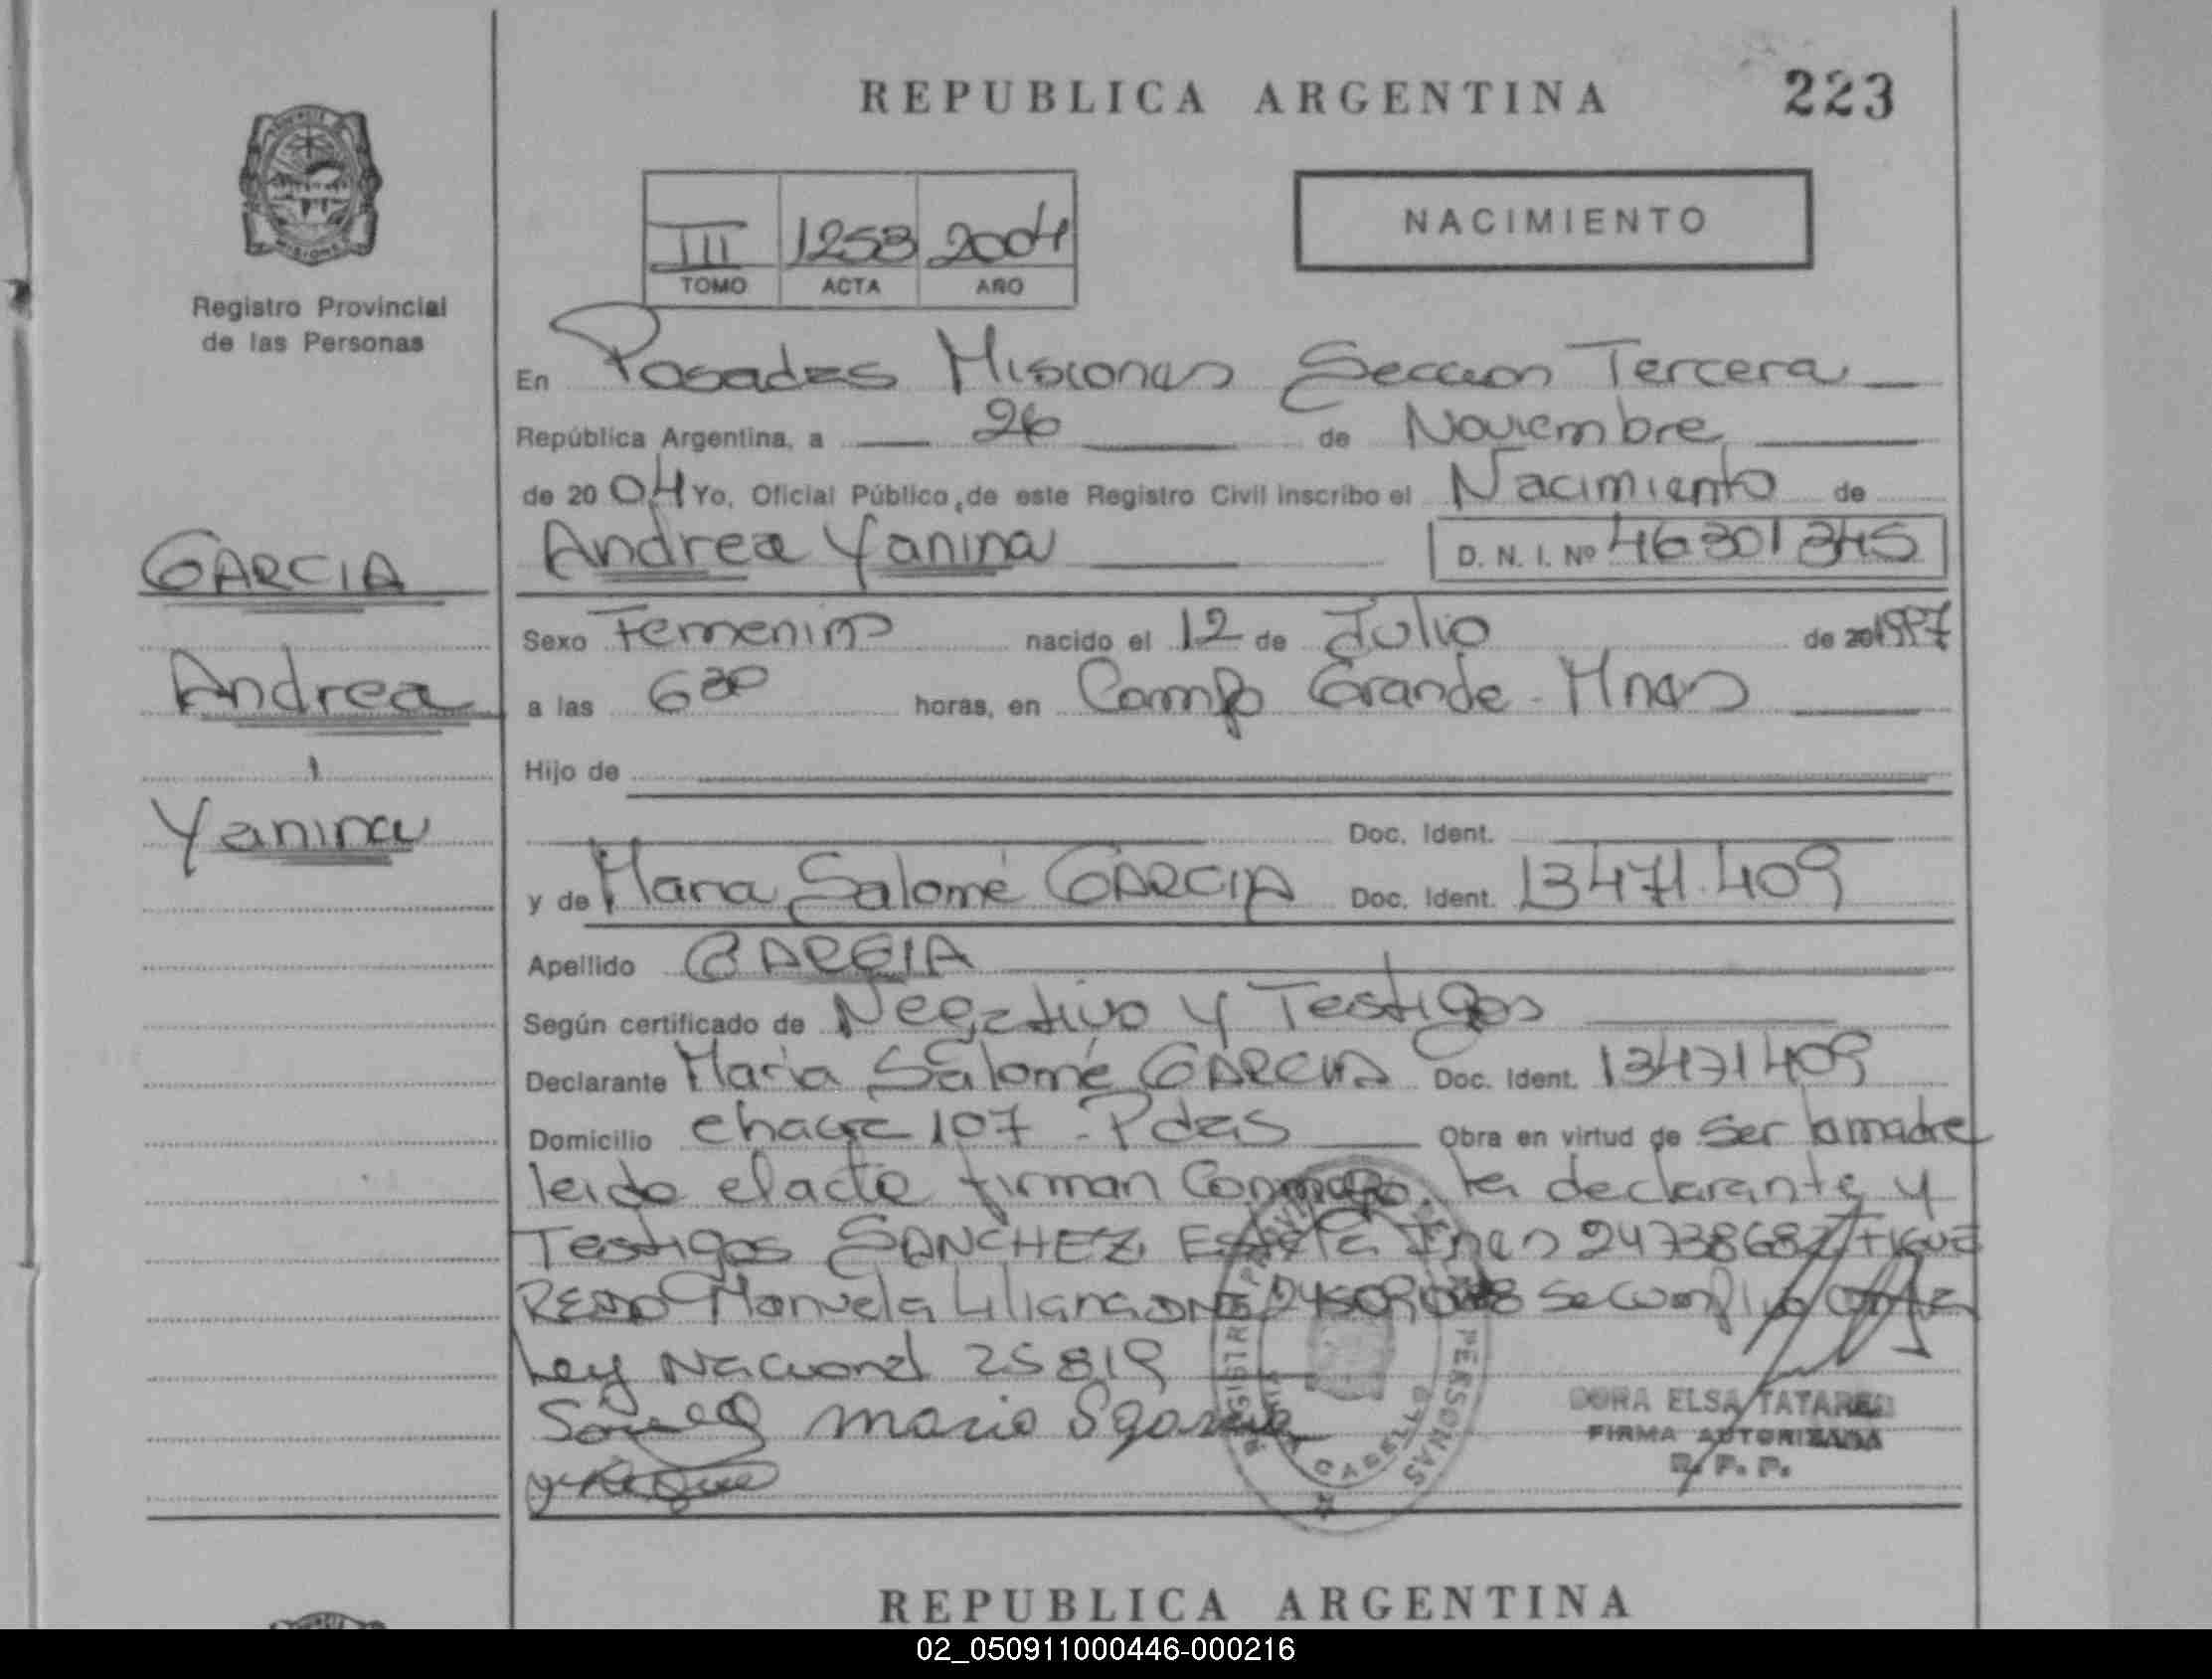 REPUBLICA ARGENTINA
223
III 1253 2004
TOMO ACTA AÑO
NACIMIENTO
MISIONES
Registro Provincial
de las Personas
En Posadas Misiones Seccion Tercera
República Argentina, a 26 de Noviembre
de 2004 Yo, Oficial Público, de este Registro Civil inscribo el Nacimiento de
Andrea Yanina D. N. I. Nº 46301345
GARCIA
Andrea
Yanina
Sexo Femenino nacido el 12 de Julio de 20 1997
a las 6 30 horas, en Campo Grande - Mnes
Hijo de
Doc. Ident.
y de Maria Salomé GARCIA Doc. Ident. 13471.409
Apellido GARCIA
Según certificado de Negativo y Testigos
Declarante Maria Salomé GARCIA Doc. Ident. 13471409
Domicilio chacra 107 - Pdas Obra en virtud de ser la madre
leida el acta firman Conmigo, la declarante y
Testigos SANCHEZ Estela Ines 24738682 FIGUE
REDO Manuela Liliana DNI se cumplio con la
Ley Nacional 25819
Maria S garcia
REGISTRO PROVINCIAL PERSONAS
DORA ELSA TATAREN
FIRMA AUTORIZADA
R. P. P.
REPUBLICA ARGENTINA
02_050911000446-000216